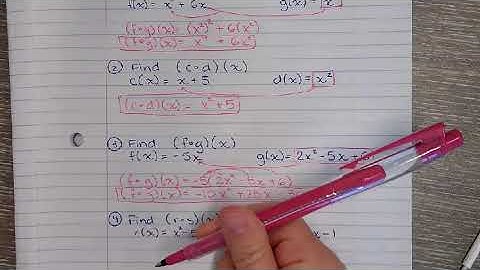 f(x) = x² + 6x g(x) = x²
(f∘g)(x) = (x²)² + 6(x²)
(f∘g)(x) = x⁴ + 6x²
② Find (c∘d)(x)
c(x) = x + 5 d(x) = x²
(c∘d)(x) = x² + 5
③ Find (f∘g)(x)
f(x) = -5x g(x) = 2x² - 5x + 6
(f∘g)(x) = -5(2x² - 5x + 6)
(f∘g)(x) = -10x² + 25x
④ Find (r∘s)(x)
r(x) = x² - 1